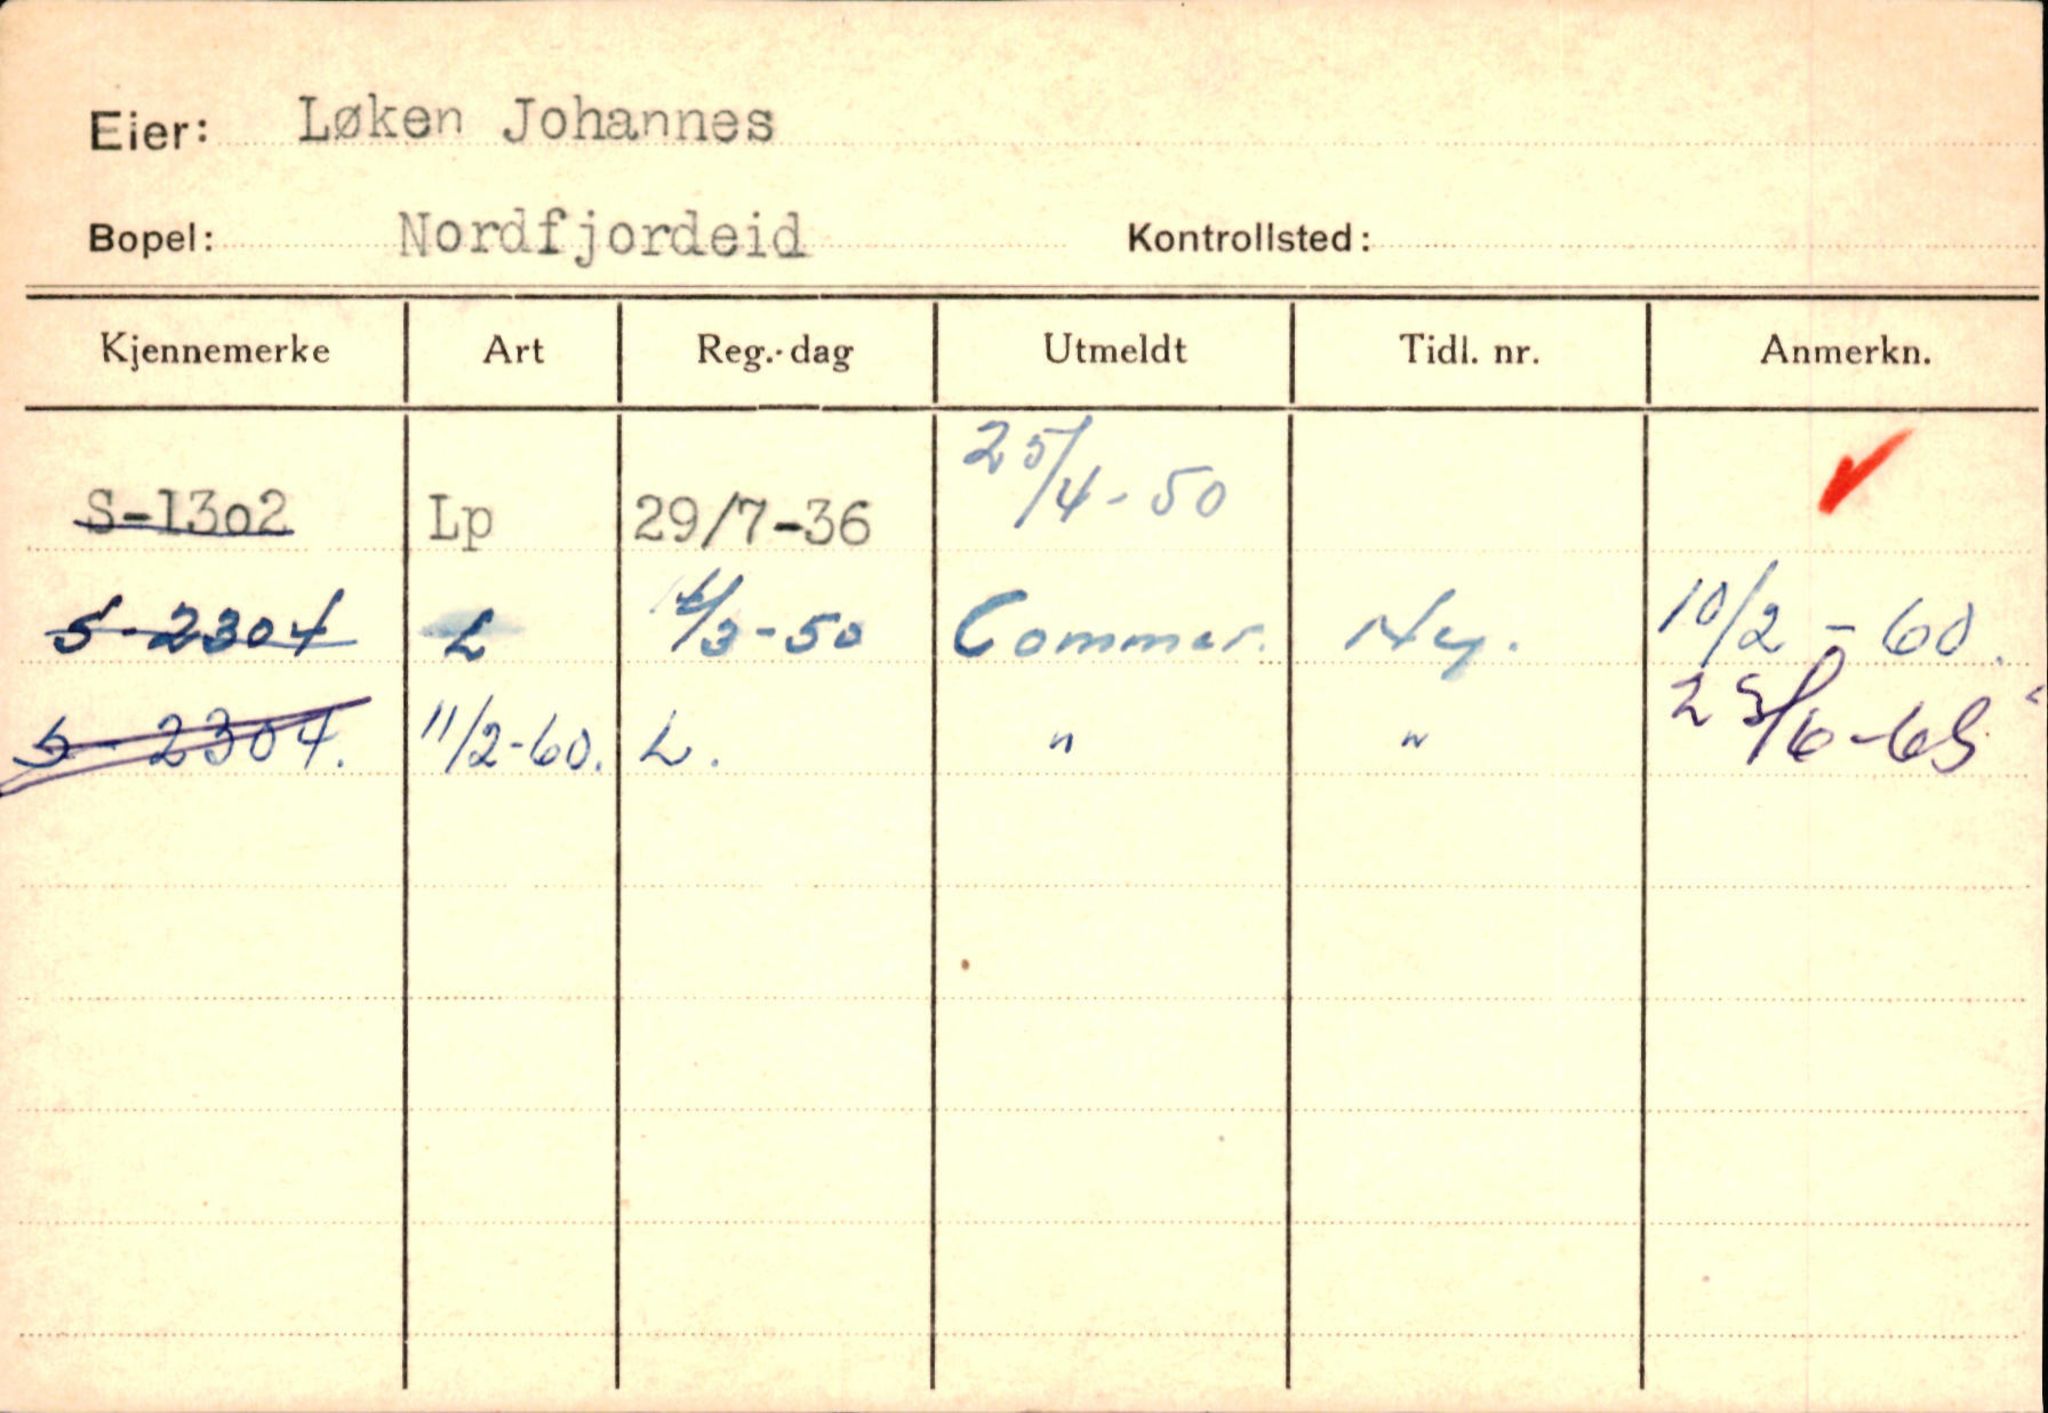 Eier: Løken Johannes
Bopel: Nordfjordeid Kontrollsted:
Kjennemerke Art Reg.-dag Utmeldt Tidl. nr. Anmerkn.
S-13o2 Lp 29/7-36 25/4-50
S-2304 L /3-50 Commer. Ny. 10/2-60.
S-2304. 11/2-60. L. " " 25/6-65